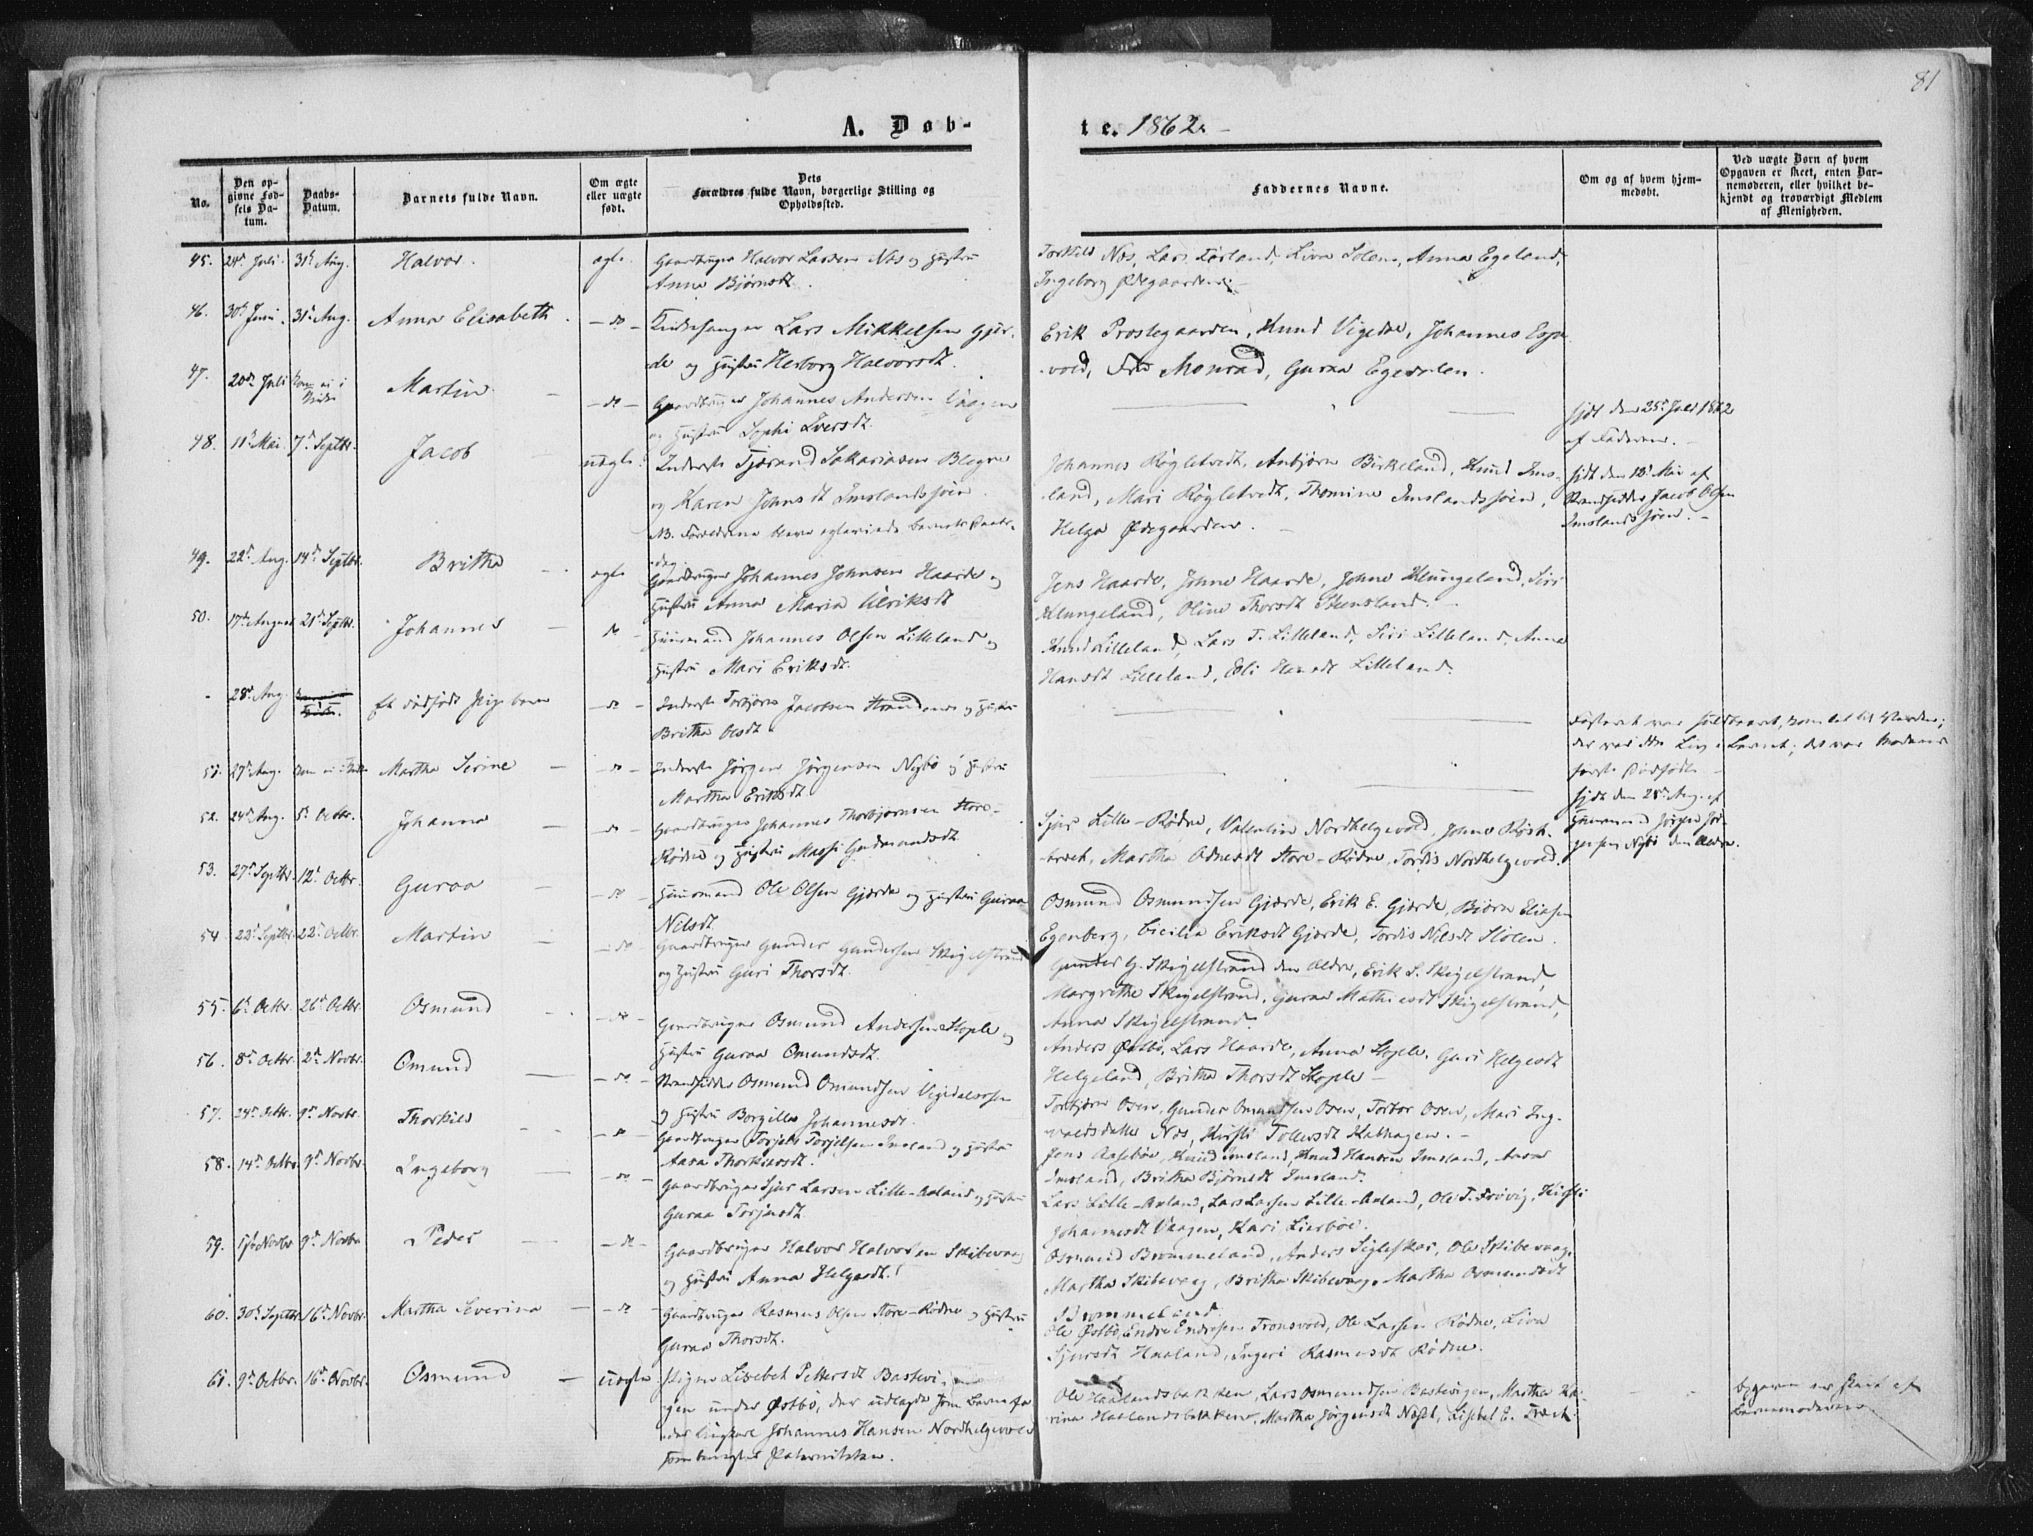 81
A. Døb-
te. 1862.
No.
Den opgivne Fødsels Datum.
Daabs-Datum.
Barnets fulde Navn.
Om ægte eller uægte født.
Dets Forældres fulde Navn, borgerlige Stilling og Opholdssted.
Faddernes Navne.
Om og af hvem hjemmedøbt.
Ved uægte Børn af hvem Opgaven er skeet, enten Barnemoderen, eller hvilket bekjendt og troværdigt Medlem af Menigheden.
45. 24de Juli. 31te Aug. Halvor. ægte. Gaardbruger Halvor Larsen Næs og Hustru
Anna Bjørnsdt.
Torkild Næs, Lars Førland, Anna Egeland,
Ingeborg Ødegaarden.
46. 30te Juni. 31te Aug. Anna Elisabeth - do - Kirkesanger Lars Mikkelsen Gjer-
de og Hustru Herborg Halvorsdt.
Erik Prestegaarden, Knud Vigedal, Johannes Espe-
vold, Monrad, Guroa Egedalen.
47. 20de Juli kom ei i Kirke Martin - do - Gaardbruger Johannes Andersen Vaagen
og Hustru Sophi Iversdt.
hjdt den 25de Juli 1862
af Faderen.
48. 11te Mai. 7de Septbr. Jacob uægte. Inderst Tjærand Sakariasen
og Karen Johnsdt Imslandssjøen.
NB. Forældrene bleve egteviede Barnets Daabs-
dag.
Johannes Røgletvedt, Anbjørn Birkeland, Knud Ims-
land, Mari Røgletvedt, Thomine Imslandssjøen,
Helga Ødegaarden.
hjdt den 12te Mai af
Strandsidder Jacob Olsen
Imslandssjøen.
49. 22de Aug. 14de Septbr. Britha ægte Gaardbruger Johannes Johnsen Haarde og
Hustru Anna Maria Ulriksdt
Jens Haarde, Johne Haarde, Johne Klungeland, Siri
Klungeland, Oline Thorsdt Steensland.
50. 17de August 21de Septbr. Johannes do Huusmand Johannes Olsen Lilleland og
Hustru Mari Eriksdt.
Knud Lilleland, Lars T. Lilleland, Siri Lilleland, Anna
Hansdt Lilleland, Eli Hansdt Lilleland.
28de Aug. Et dødfødt Pigebarn - do - Inderst Torbjørn Jacobsen og Hustru
Britha Olsdt.
Fosteret var fuldbaaret, kom
der var ikke Liv i Barnet; det var Moderens
første Dødfødte
51. 27de Aug. kom ei i Kirke Martha Serine - do - Inderst Jørgen Jørgensen Nybø og Hustru
Martha Eriksdt
hjdt den 28de Aug. af
Huusmand Jørgen Jør-
gensen Nybø den Ældre.
52. 24de Aug. 5te Octbr. Johanna - do - Gaardbruger Johannes Thorbjørnsen Store-
Rødne og Hustru Massi Gudmundsdt
Sjur Lille-Rødne, Valentin Nordhelgevold, Johne
Martha Odnesdt Store-Rødne, Tordis Nordhelgevold.
53. 27de Septbr. 12te Octbr. Guroa - do - Huusmand Ole Olsen Gjærde og Hustru Guroa
Nilsdt.
Osmund Osmundsen Gjærde, Erik E. Gjærde, Bjørn Eliasen
Egenberg, Cicilia Eriksdt Gjærde, Tordis Nilsdt Stølen.
54. 22de Septbr. 22de Octbr. Martin - do - Gaardbruger Gunder Gundersen Skigelstrand
og Hustru Guri Thorsdt.
Gunder G. Skigelstrand den Ældre, Erik S. Skigelstrand,
Margrethe Skigelstrand, Guroa Mathiesdt Skigelstrand,
Anna Skigelstrand.
55. 6te Octbr. 26de Octbr. Osmund - do - Gaardbruger Osmund Andersen Hople og
Hustru Guroa Omundsdt.
Anders Østbø, Lars Haarde, Anna Hople, Guri Helgesdt
Helgeland, Britha Thorsdt Hople
56. 8de Octbr. 2de Novbr. Omund - do - Strandsidder Osmund Omundsen Vigedalsosen
og Hustru Borgilla Johannesdt.
Torbjørn Osen, Gunder Omundsen Osen, Torbor Osen, Mari Ing-
valdsdatter Næs, Kirsti Tollevsdt Kathagen.
57. 24de Octbr. 9de Novbr. Thorkild - do - Gaardbruger Torjels Torjelsen Imsland og Hustru
Aasa Thorkilsdt.
Jens Aasebøe, Knud Imsland, Knud Hansen Imsland,
Imsland, Britha Bjørnsdt Imsland.
58. 14de Octbr. 9de Novbr. Ingeborg - do - Gaardbruger Sjur Larsen Lille-Aaland og Hustru
Guroa Torjusdt.
Lars Lille-Aaland, Lars Larsen Lille-Aaland, Ole T. Frøvig, Kirsti
Johannesdt Vaagen, Kari Lierbøe.
59. 1ste Novbr. 9de Novbr. Peder - do - Gaardbruger Halvor Halvorsen Skibevaag
og Hustru Anna Helgesdt.
Osmund Brommeland, Anders Sigleskar, Ole Skibevaag,
Martha Skibevaag, Britha Skibevaag, Martha Osmundsdt
Brommeland.
60. 30te Septbr. 16de Novbr. Martha Severina - do - Gaardbruger Rasmus Olsen Store-Rødne og Hustru
Guroa Thorsdt.
Ole Østbø, Endre Endresen Tronsvold, Ole Larsen Rødne, Liva
Sjursdt Haaland, Ingeri Rasmusdt Rødne.
61. 9de Octbr. 16de Novbr. Osmund - uægte Pigen Lisebet Pettersdt Bastevi-
gen under Østbø, der udlagde som Barnefa-
der Ungkarl Johannes Hansen Nordhelgevold
som benægtet Paterniteten.
Ole Haalandsbakken, Lars Osmundsen Bastevigen, Martha Ka-
rina Haalandsbakken, Martha Jørgensdt Næset, Lisebet E.
Opgaven er skeet af
Barnemoderen